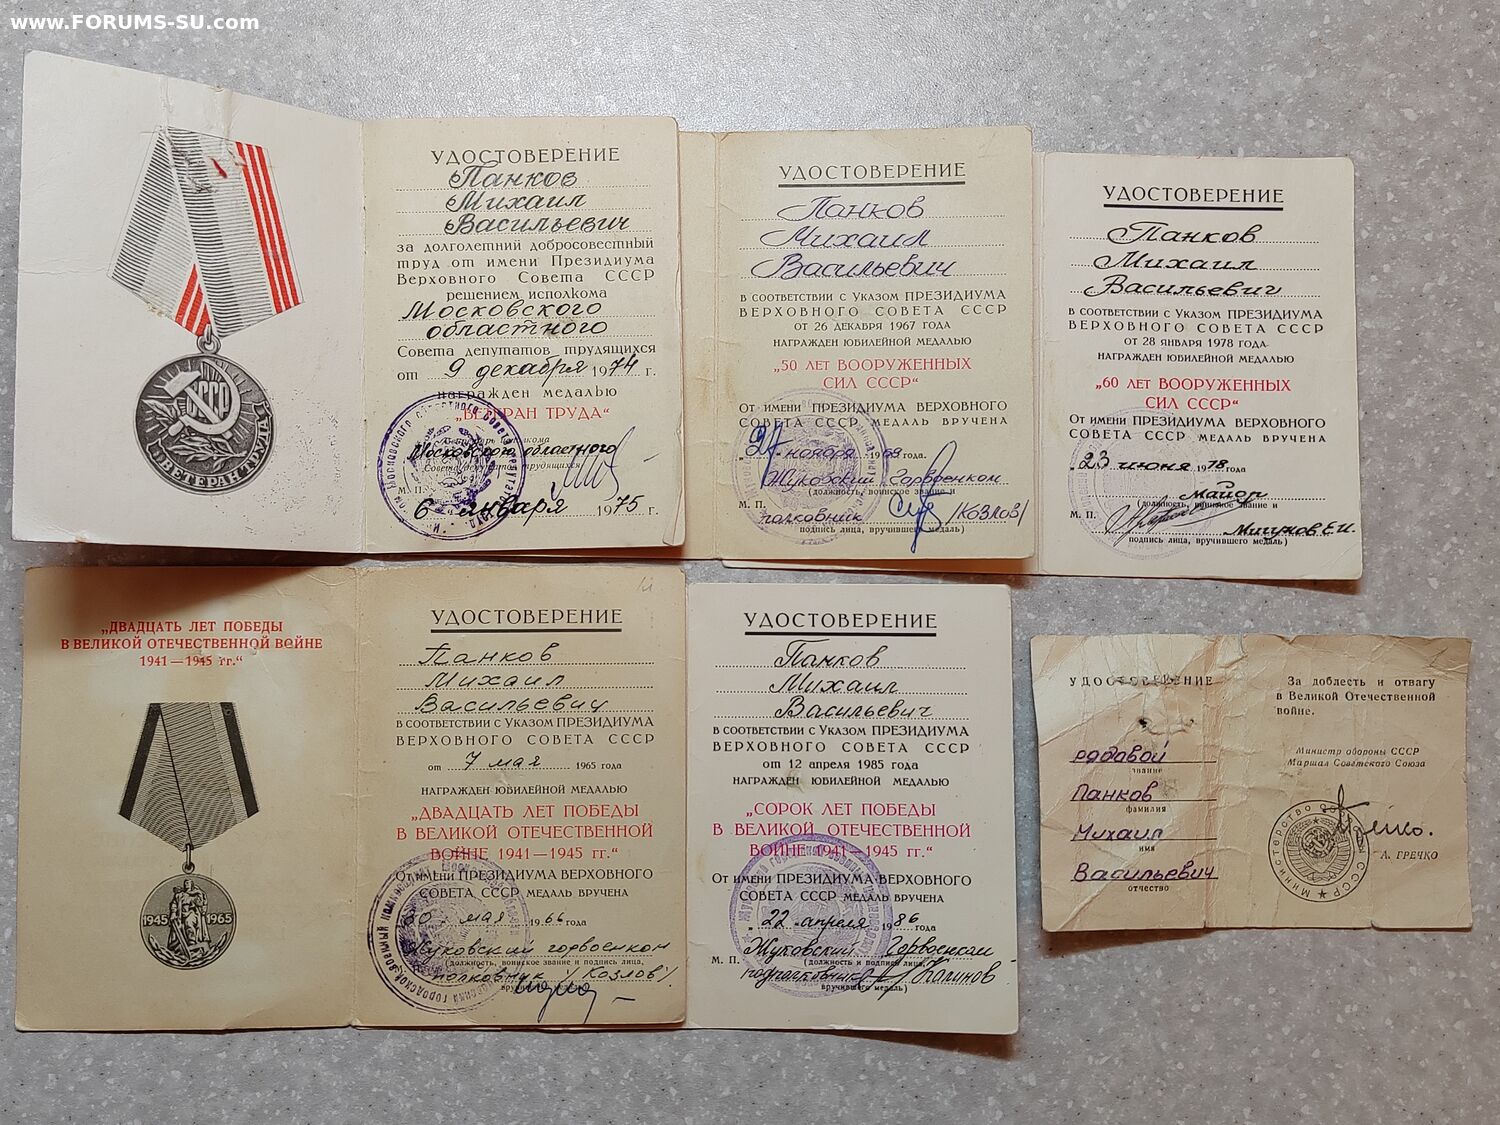 www.FORUMS-SU.com
СССР
ВЕТЕРАН ТРУДА
УДОСТОВЕРЕНИЕ
Панков
Михаил
Васильевич
за долголетний добросовестный
труд от имени Президиума
Верховного Совета СССР
решением исполкома
Московского
областного
Совета депутатов трудящихся
от 9 декабря 1974 г.
награжден медалью
„ВЕТЕРАН ТРУДА“
Московского областного
Совета депутатов трудящихся
М. П.
6 января 1975 г.
УДОСТОВЕРЕНИЕ
Панков
Михаил
Васильевич
в соответствии с Указом ПРЕЗИДИУМА
ВЕРХОВНОГО СОВЕТА СССР
от 26 декабря 1967 года
награжден юбилейной медалью
„50 ЛЕТ ВООРУЖЕННЫХ
СИЛ СССР“
От имени ПРЕЗИДИУМА ВЕРХОВНОГО
СОВЕТА СССР медаль вручена
ноября 1969 года
Жуковский Горвоенком
(должность, воинское звание и
М. П. полковник /Козлов/
подпись лица, вручившего медаль)
УДОСТОВЕРЕНИЕ
Панков
Михаил
Васильевич
в соответствии с Указом ПРЕЗИДИУМА
ВЕРХОВНОГО СОВЕТА СССР
от 28 января 1978 года
награжден юбилейной медалью
„60 ЛЕТ ВООРУЖЕННЫХ
СИЛ СССР“
От имени ПРЕЗИДИУМА ВЕРХОВНОГО
СОВЕТА СССР медаль вручена
„23 июня 1978 года
майор
(должность, воинское звание и
М. П.
подпись лица, вручившего медаль)
„ДВАДЦАТЬ ЛЕТ ПОБЕДЫ
В ВЕЛИКОЙ ОТЕЧЕСТВЕННОЙ ВОЙНЕ
1941—1945 гг.“
1945 1965
УДОСТОВЕРЕНИЕ
Панков
Михаил
Васильевич
в соответствии с Указом ПРЕЗИДИУМА
ВЕРХОВНОГО СОВЕТА СССР
от 7 мая 1965 года
награжден юбилейной медалью
„ДВАДЦАТЬ ЛЕТ ПОБЕДЫ
В ВЕЛИКОЙ ОТЕЧЕСТВЕННОЙ
ВОЙНЕ 1941—1945 гг.“
От имени ПРЕЗИДИУМА ВЕРХОВНОГО
СОВЕТА СССР медаль вручена
мая 1966 года
Жуковский горвоенком
(должность, воинское звание и подпись лица,
полковник /Козлов/
УДОСТОВЕРЕНИЕ
Панков
Михаил
Васильевич
в соответствии с Указом ПРЕЗИДИУМА
ВЕРХОВНОГО СОВЕТА СССР
от 12 апреля 1985 года
награжден юбилейной медалью
„СОРОК ЛЕТ ПОБЕДЫ
В ВЕЛИКОЙ ОТЕЧЕСТВЕННОЙ
ВОЙНЕ 1941—1945 гг.“
От имени ПРЕЗИДИУМА ВЕРХОВНОГО
СОВЕТА СССР медаль вручена
„22 апреля 1986 года
Жуковский Горвоенком
М. П. (должность и подпись лица,
подполковник
вручившего медаль)
УДОСТОВЕРЕНИЕ
рядовой
звание
Панков
фамилия
Михаил
имя
Васильевич
отчество
За доблесть и отвагу
в Великой Отечественной
войне.
Министр обороны СССР
Маршал Советского Союза
А. ГРЕЧКО